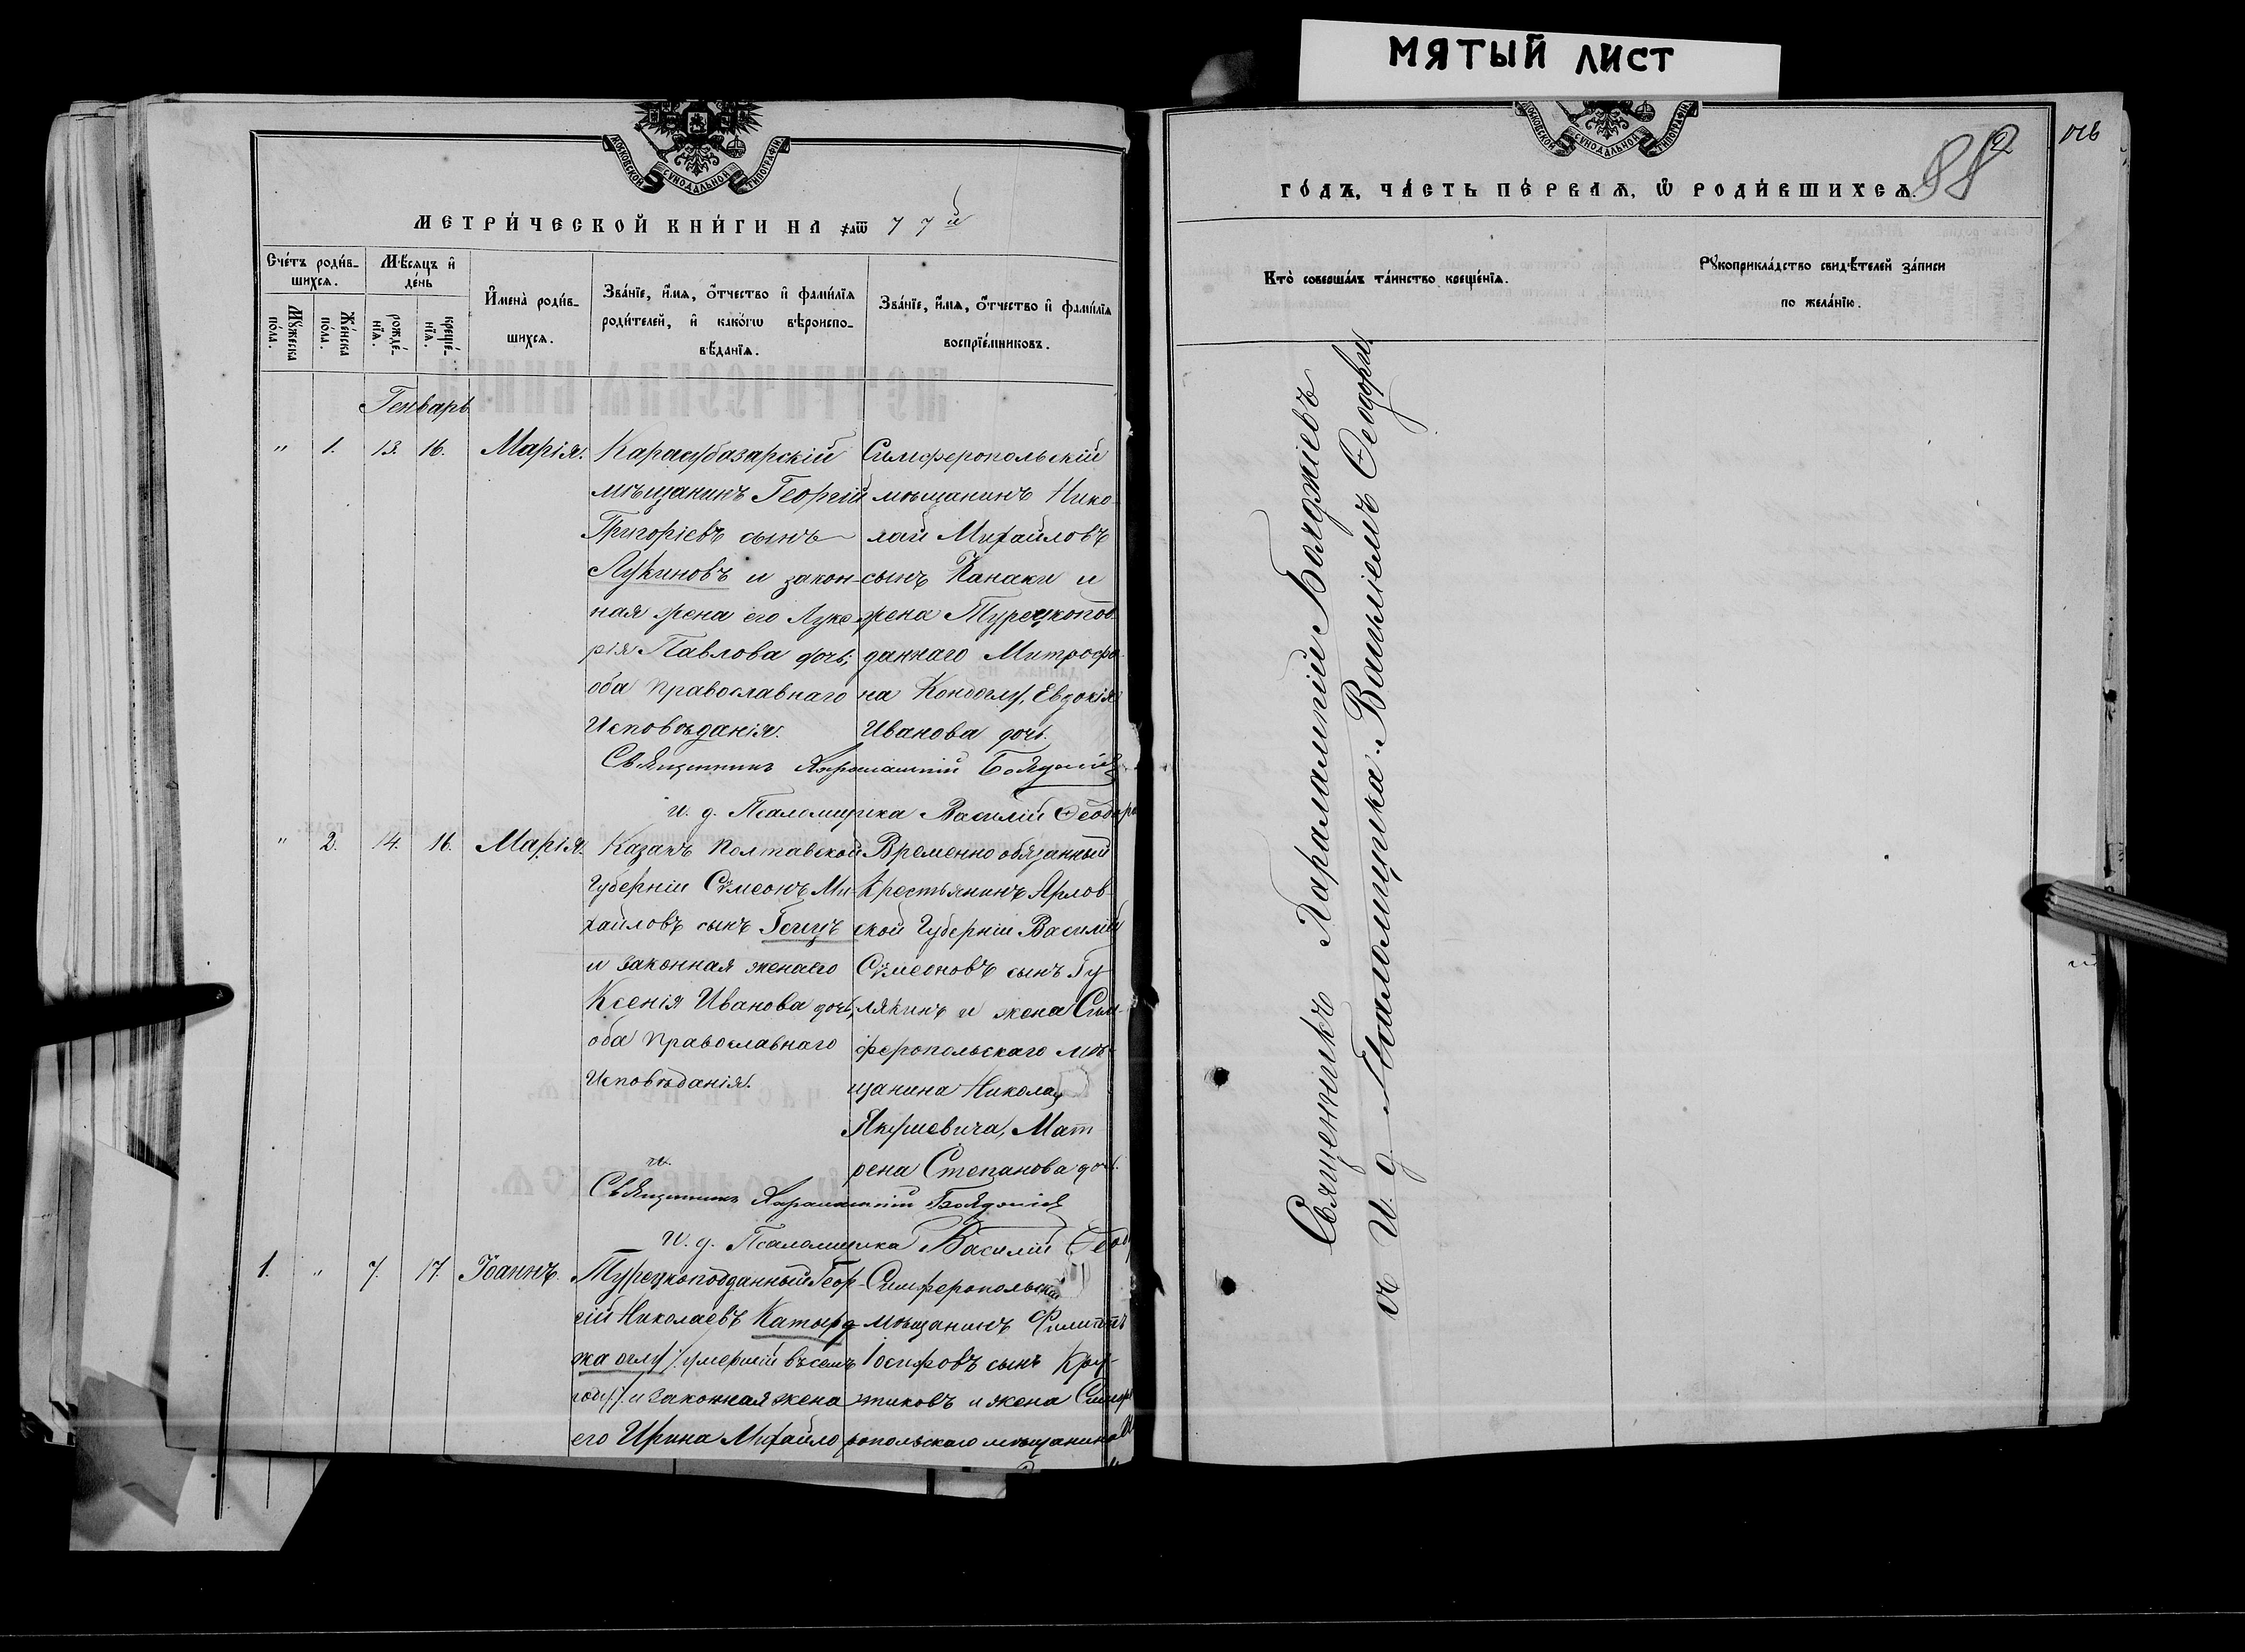 МЯТЫЙ ЛИСТ
МОСКОВСКОЙ СѴНОДАЛЬНОЙ ТИПОГРАФІИ
МЕТРИ́ЧЕСКОЙ КНИ́ГИ НА ҂аѿ 77й
Сче́тъ роди́в-
шихсѧ.
Мѣ́сѧцъ и҆
де́нь
Мꙋ́жеска
по́ла.
Же́нска
по́ла.
рожде́-
нїѧ.
креще́-
нїѧ.
И҆мена̀ роди́в-
шихсѧ.
Зва́нїе, и҆́мѧ, ѻ҆́тчество и҆ фами́лїѧ
роди́телей, и҆ како́гѡ вѣроиспо-
вѣ́данїѧ.
Зва́нїе, и҆́мѧ, ѻ҆́тчество и҆ фами́лїѧ
воспрїе́мниковъ.
Генварь
" 1. 13. 16. Марія.
Карасубазарскій
мѣщанинъ Георгій
Григоріевъ сынъ
Лукиновъ и закон-
ная жена его Луке
рія Павлова дочь,
оба православнаго
Исповѣданія.
Симферопольскій
мѣщанинъ Нико-
лай Михайловъ
сынъ Канаки и
жена Турецкопод-
даннаго Митрофа-
на Кондоглу, Евдокія
Иванова дочь.
Священникъ Харалампій Болджіевъ
И. д. Псаломщика Василій Ѳеодори
" 2. 14. 16. Марія.
Казакъ Полтавской
Губерніи Сѵмеонъ Ми-
хайловъ сынъ
и законная жена его
Ксенія Иванова дочь,
оба Православнаго
Исповѣданія.
Временно обязанный
Крестьянинъ Арлов-
ской Губерніи Василій
Сѵмеоновъ сынъ Гу-
лякинъ и жена Сим-
феропольскаго мѣ-
щанина Николая
Якушевича, Мат
рена Степанова дочь.
Священникъ Харалампій Болджіевъ
И. д. Псаломщика Василій Ѳеод
1. " 7. 17. Іоаннъ.
Турецкоподданный Геор-
гій Николаевъ Катырд
жа оглу /: умершій въ семъ
году :/ и законная жена
его Ирина Михайло
Симферопольскій
мѣщанинъ Филиппъ
Іосифовъ сынъ Кру-
тиковъ и жена Симфе
ропольскаго мѣщанина
ГО́ДЪ, ЧА́СТЬ ПЕ́РВАѦ, Ѡ҆ РОДИ́ВШИХСѦ.
882
МОСКОВСКОЙ СѴНОДАЛЬНОЙ ТИПОГРАФІИ
Кто̀ соверша́лъ та́инство креще́нїѧ.
Рꙋкоприкла́дство свидѣ́телей за́писи
по жела́нїю.
Священникъ Харалампій Болджіевъ
и И. д. Псаломщика Василій Ѳеодори